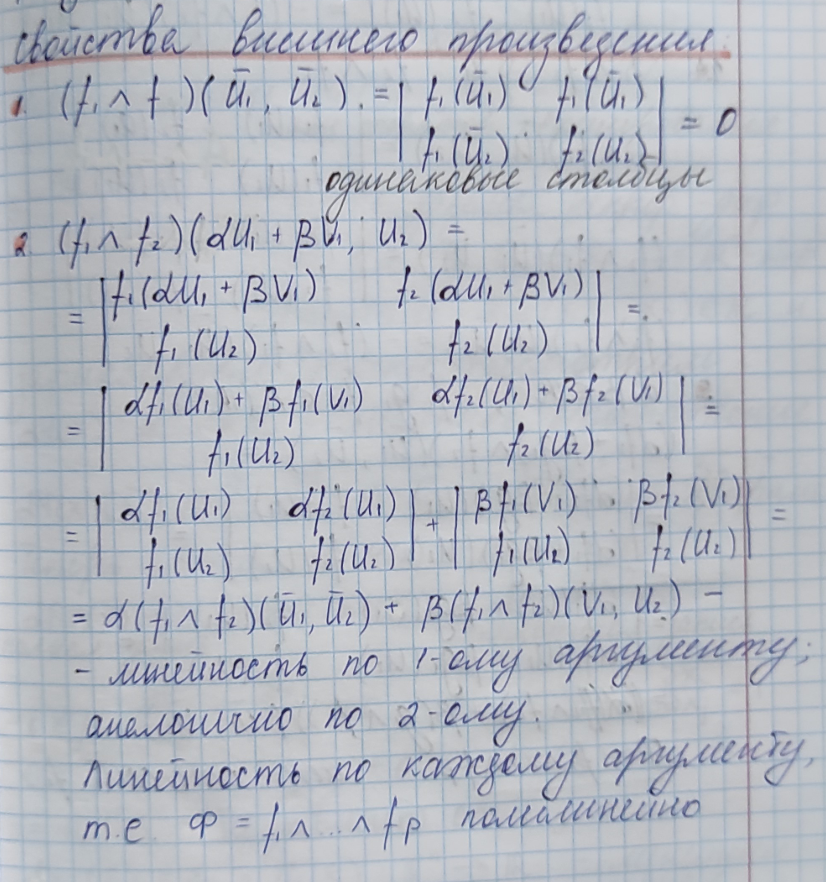 свойства внешнего произведения.
1. (f₁ ∧ f )(ū₁, ū₂) = | f₁(ū₁) f₁(ū₁) |
| f₁(ū₂) f₂(u₂) | = 0
одинаковые столбцы
2. (f₁ ∧ f₂)(αu₁ + βv₁, u₂) =
= | f₁(αu₁ + βv₁) f₂(αu₁ + βv₁) | =
| f₁(u₂) f₂(u₂) |
= | αf₁(u₁) + βf₁(v₁) αf₂(u₁) + βf₂(v₁) | =
| f₁(u₂) f₂(u₂) |
= | αf₁(u₁) αf₂(u₁) | + | βf₁(v₁) βf₂(v₁) | =
| f₁(u₂) f₂(u₂) | | f₁(u₂) f₂(u₂) |
= α(f₁ ∧ f₂)(ū₁, ū₂) + β(f₁ ∧ f₂)(v₁, u₂) –
– линейность по 1-ому аргументу;
аналогично по 2-ому.
Линейность по каждому аргументу,
т.е φ = f₁ ∧ .. ∧ fp полилинейно